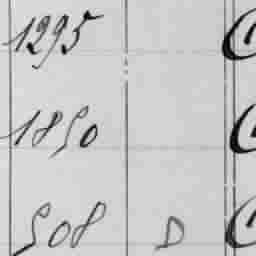 1295
1850
508 D